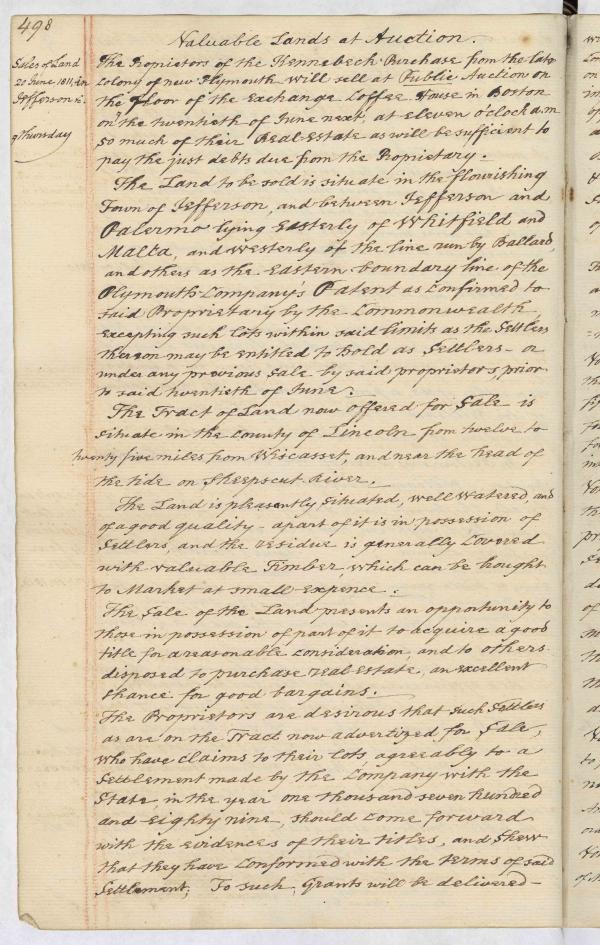 498
Valuable Lands at Auction.
Sales of Land
20 June 1811, in
Jefferson &c.
Thursday
The Proprietors of the Kennebeck Purchase from the late
Colony of new Plymouth will sell at Public Auction on
the Floor of the Exchange Coffee House in Boston
on the twentieth of June next, at eleven o'clock a.m
so much of their Real Estate as will be sufficient to
pay the just debts due from the Proprietary.
The Land to be sold is situate in the flourishing
Town of Jefferson, and between Jefferson and
Palermo lying Easterly of Whitfield and
Malta, and Westerly of the line run by Ballard
and others as the Eastern boundary line of the
Plymouth Company's Patent as confirmed to
said Proprietary by the Commonwealth,
excepting such lots within said limits as the Settlers
thereon may be entitled to hold as Settlers - or
under any previous sale by said proprietors prior
to said twentieth of June.
The Tract of Land now offered for Sale is
situate in the county of Lincoln from twelve to
twenty five miles from Wiscasset, and near the head of
the tide on Sheepscut River.
The Land is pleasantly situated, well watered, and
of a good quality - a part of it is in possession of
Settlers, and the residue is generally covered
with valuable Timber, which can be bought
to Market at small expence.
The Sale of the Land presents an opportunity to
those in possession of part of it to acquire a good
title for a reasonable consideration, and to others
disposed to purchase real estate, an excellent
chance for good bargains.
The Proprietors are desirous that such Settlers
as are on the Tract now advertized for Sale,
who have claims to their lots, agreeably to a
Settlement made by the Company with the
State, in the year one thousand seven hundred
and eighty nine, should come forward
with the evidences of their titles, and shew
that they have conformed with the terms of said
Settlement; To such, Grants will be delivered -